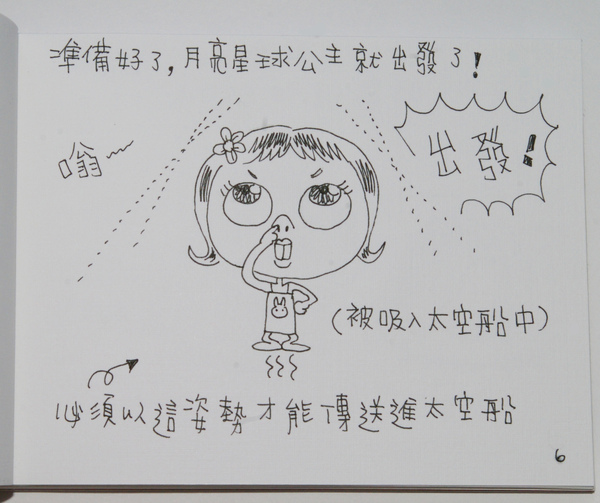 準備好了,月亮星球公主就出發了!
嗡
出發!
(被吸入太空船中)
必須以這姿勢才能傳送進太空船
6